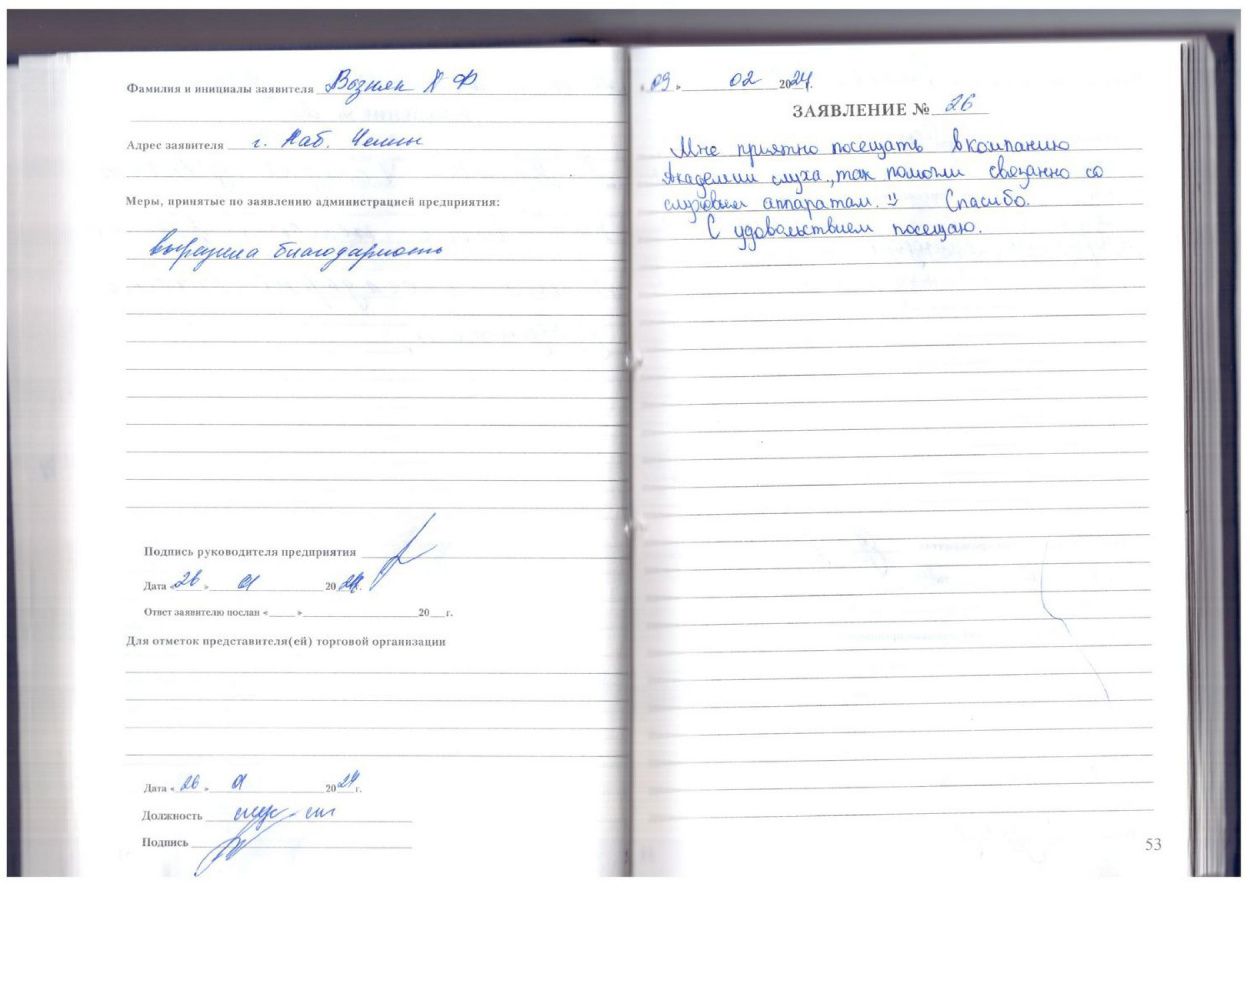 Фамилия и инициалы заявителя Возняк Х Ф
Адрес заявителя г. Наб. Челны
Меры, принятые по заявлению администрацией предприятия:
выразила благодарность
Подпись руководителя предприятия
Дата «26 » 01 20 24г.
Ответ заявителю послан « » 20 г.
Для отметок представителя(ей) торговой организации
Дата « 26 » 01 20 24 г.
Должность
Подпись
« 09 » 02 2024г.
ЗАЯВЛЕНИЕ № 26
Мне приятно посещать в компанию
Академии слуха, так помогли связанно со
слуховым аппаратам. Спасибо.
С удовольствием посещаю.
53